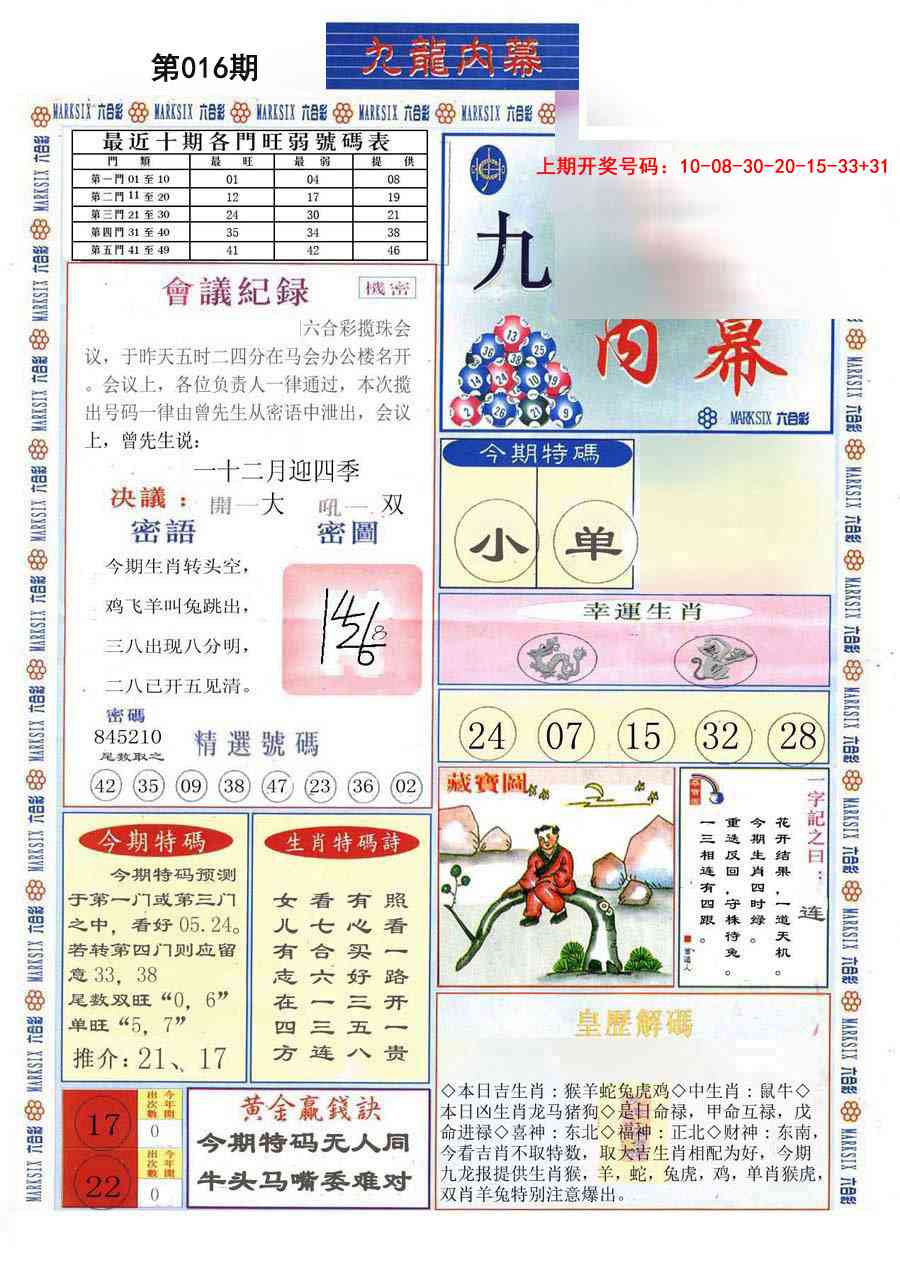 第016期
九龍内幕
MARKSIX 六合彩
最近十期各門旺弱號碼表
門 類 最 旺 最 弱 提 供
第一門 01 至 10 01 04 08
第二門 11 至 20 12 17 19
第三門 21 至 30 24 30 21
第四門 31 至 40 35 34 38
第五門 41 至 49 41 42 46
上期开奖号码：10-08-30-20-15-33+31
九
内幕
MARKSIX 六合彩
會議紀録
機密
六合彩揽珠会
议，于昨天五时二四分在马会办公楼名开
。会议上，各位负责人一律通过，本次揽
出号码一律由曾先生从密语中泄出，会议
上，曾先生说：
一十二月迎四季
决議： 開一大 吼一 双
密語 密圖
今期生肖转头空，
鸡飞羊叫兔跳出，
三八出现八分明，
二八已开五见清。
密碼
845210
尾数取之
精選號碼
42 35 09 38 47 23 36 02
今期特碼
小 单
幸運生肖
24 07 15 32 28
今期特碼
今期特码预测
于第一门或第三门
之中，看好 05.24。
若转第四门则应留
意 33，38
尾数双旺“0，6”
单旺“5，7”
推介：21、17
生肖特碼詩
女看有照
儿七心看
有合买一
志六好路
在一三开
四三五一
方连八贵
藏寶圖
一字記之曰：连
花开结果，一道天机。
今期生肖四时绿。
重迭反回，守株待兔。
一三相连有四跟。
17 出次數 今年開 0
22 出次數 今年開 0
黄金贏錢訣
今期特码无人同
牛头马嘴委难对
皇歷解碼
◇本日吉生肖：猴羊蛇兔虎鸡◇中生肖：鼠牛◇
本日凶生肖龙马猪狗◇是日命禄，甲命互禄，戊
命进禄◇喜神：东北◇福神：正北◇财神：东南，
今看吉肖不取特数，取大吉生肖相配为好，今期
九龙报提供生肖猴，羊，蛇，兔虎，鸡，单肖猴虎，
双肖羊兔特别注意爆出。